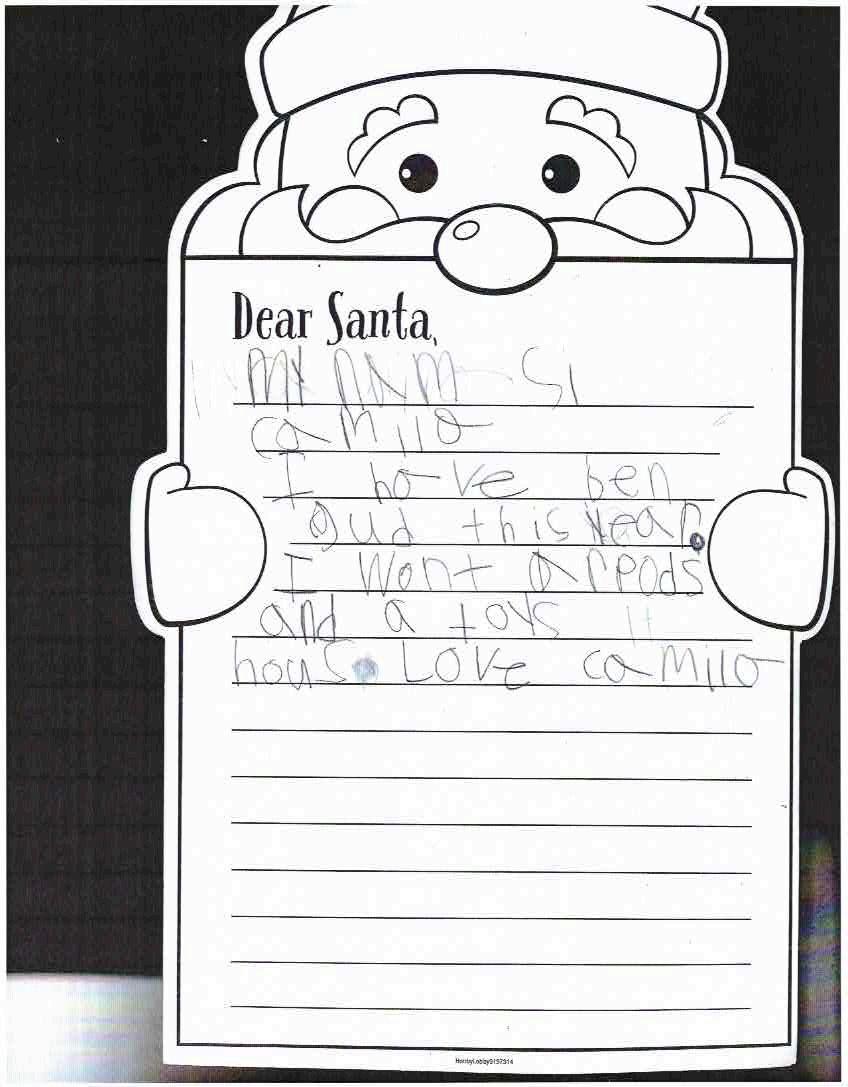 Dear Santa,
MY NAM SI
camilo
I have ben
gud this Year.
I Wont Arpods
and a toys
hous. Love camilo